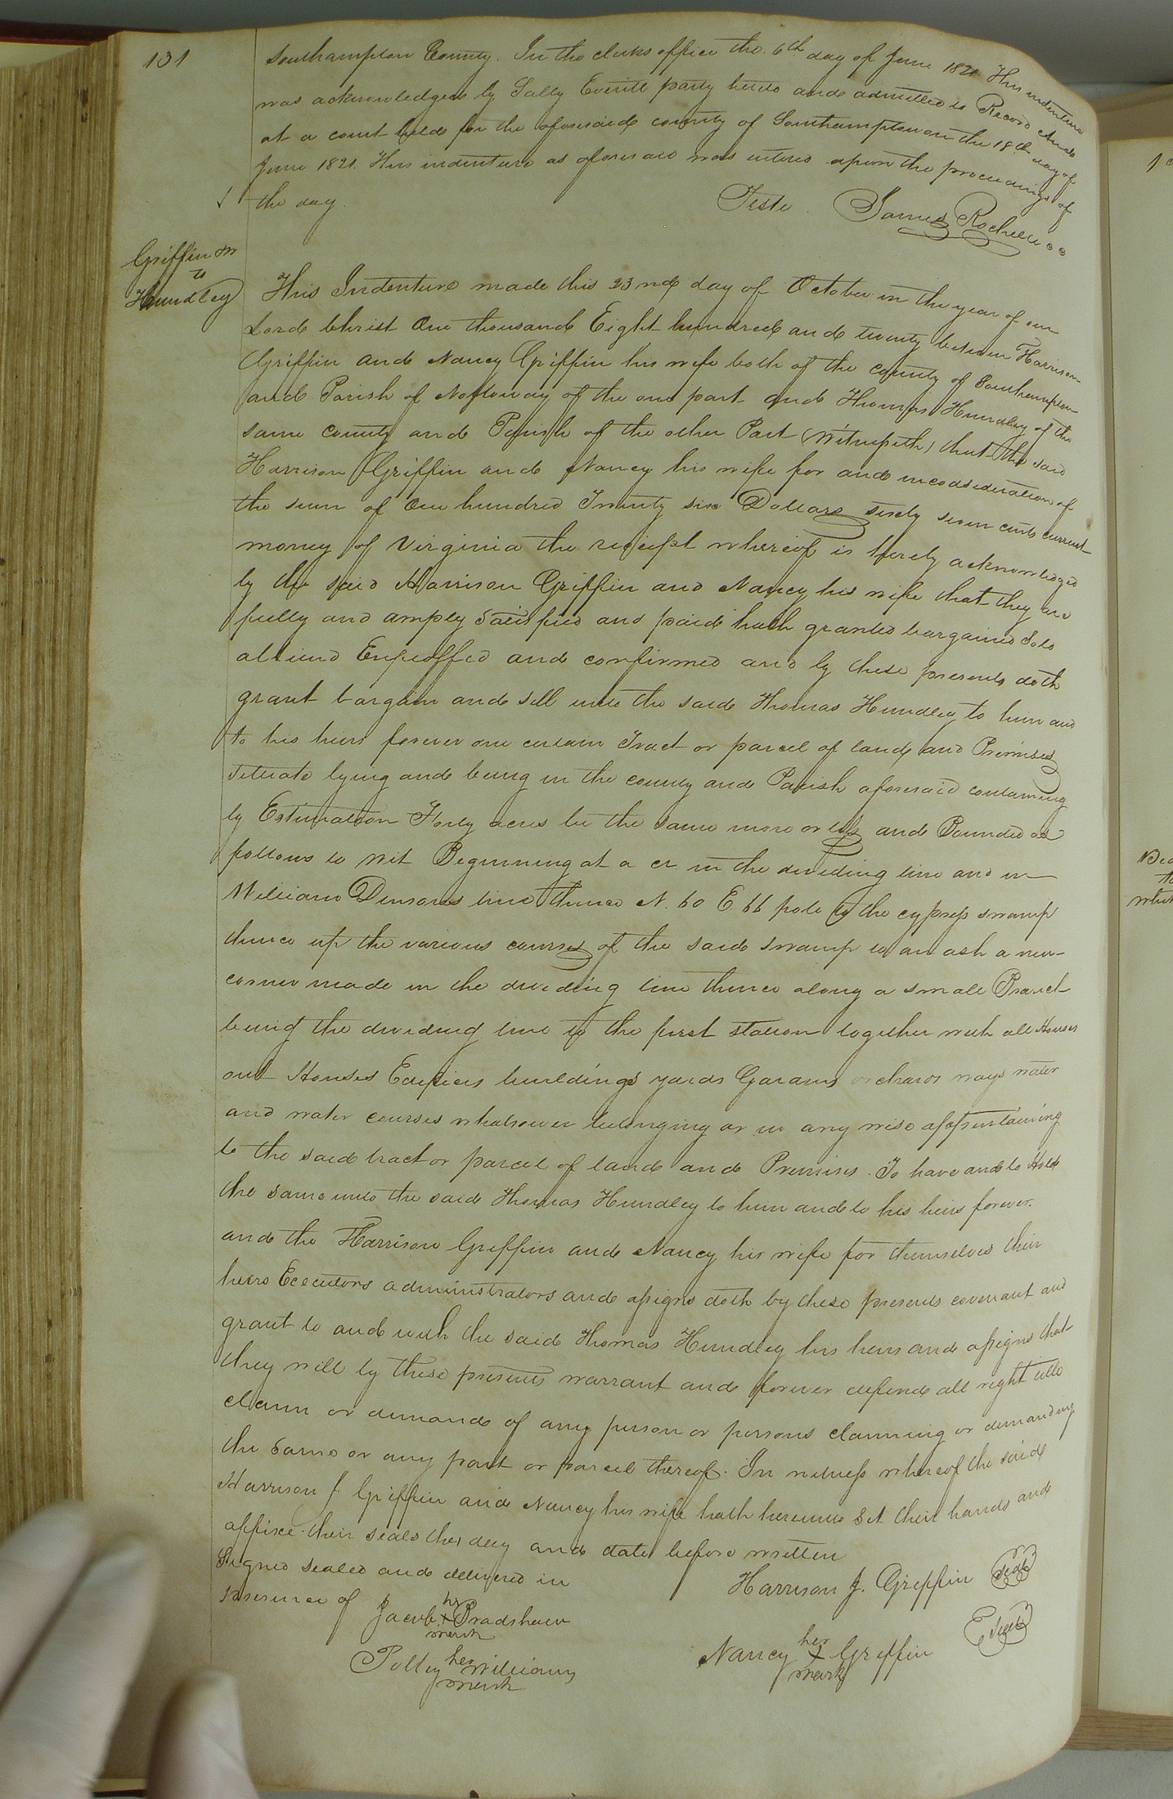 131
Southampton County. In the clerks office the 6th day of June 1821 This indenture
was acknowledged by Sally Everitt party hereto and admitted to Record And
at a court held for the aforesaid county of Southampton on the 18th day of
June 1821. This indenture as aforesaid was entered upon the proceedings of
the day
Teste James Rochelle cc
Griffin &
to
Hundley
This Indenture made this 23nd day of October in the year of our
Lord Christ One thousand Eight hundred and twenty between Harrison
Griffin and Nancy Griffin his wife both of the county of Southampton
and Parish of Nottoway of the one part and Thomas Hundley of the
same county and Parish of the other Part (Witnesseth) that the said
Harrison Griffin and Nancy his wife for and in consideration of
the sum of One hundred Twenty six Dollars sixty seven cents current
money of Virginia the receipt whereof is hereby acknowledged
by the said Harrison Griffin and Nancy his wife that they are
fully and amply Satisfied and paid hath granted bargained Sold
aliend Enfeoffed and confirmed and by these presents doth
grant bargain and sell unto the said Thomas Hundley to him and
to his heirs forever one certain Tract or parcel of land and Premises
situate lying and being in the county and Parish aforesaid containing
by Estimation Forty acres be the same more or less and Bounded as
follows to wit Beginning at a in the dividing line and in
William Densons line thence N. 60 E 66 pole to the cypress swamp
thence up the various courses of the said swamp to an ash a new
corner made in the dividing line thence along a small Branch
being the dividing line to the first station together with all Houses
out Houses Edifices buildings yards Gardens orchards ways water
and water courses whatsoever belonging or in any wise appertaining
to the said tract or parcel of land and Premises. To have and to Hold
the same unto the said Thomas Hundley to him and to his heirs forever.
and the Harrison Griffin and Nancy his wife for themselves their
heirs Executors administrators and assigns doth by these presents covenant and
grant to and with the said Thomas Hundley his heirs and assigns that
they will by these presents warrant and forever defend all right title
claim or demand of any person or persons claiming or demanding
the same or any part or parcel thereof. In witness whereof the said
Harrison J. Griffin and Nancy his wife hath hereunto Set their hands and
affixe their seals the day and date before written
Signed sealed and delivered in
presence of
Harrison J. Griffin Seal
Jacob his + mark Bradshaw
Nancy her + mark Griffin Seal
Polley her mark Williams